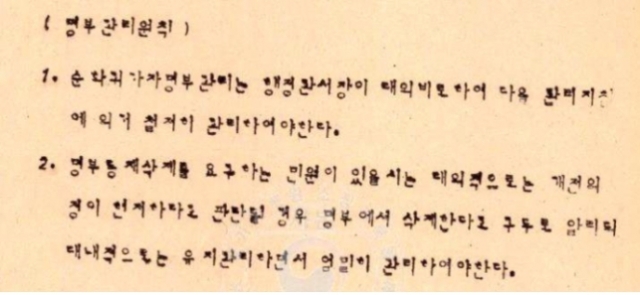 ( 명부관리원칙 )
1. 순화귀가자명부관리는 행정관서장이 대외비로하여 다음 관리지침
에 의거 철저히 관리하여야한다.
2. 명부등재삭제를 요구하는 민원이 있을시는 대외적으로는 개전의
정이 현저하다고 판단될 경우 명부에서 삭제한다고 구두로 알리되
대내적으로는 유지관리하면서 엄밀히 관리하여야한다.